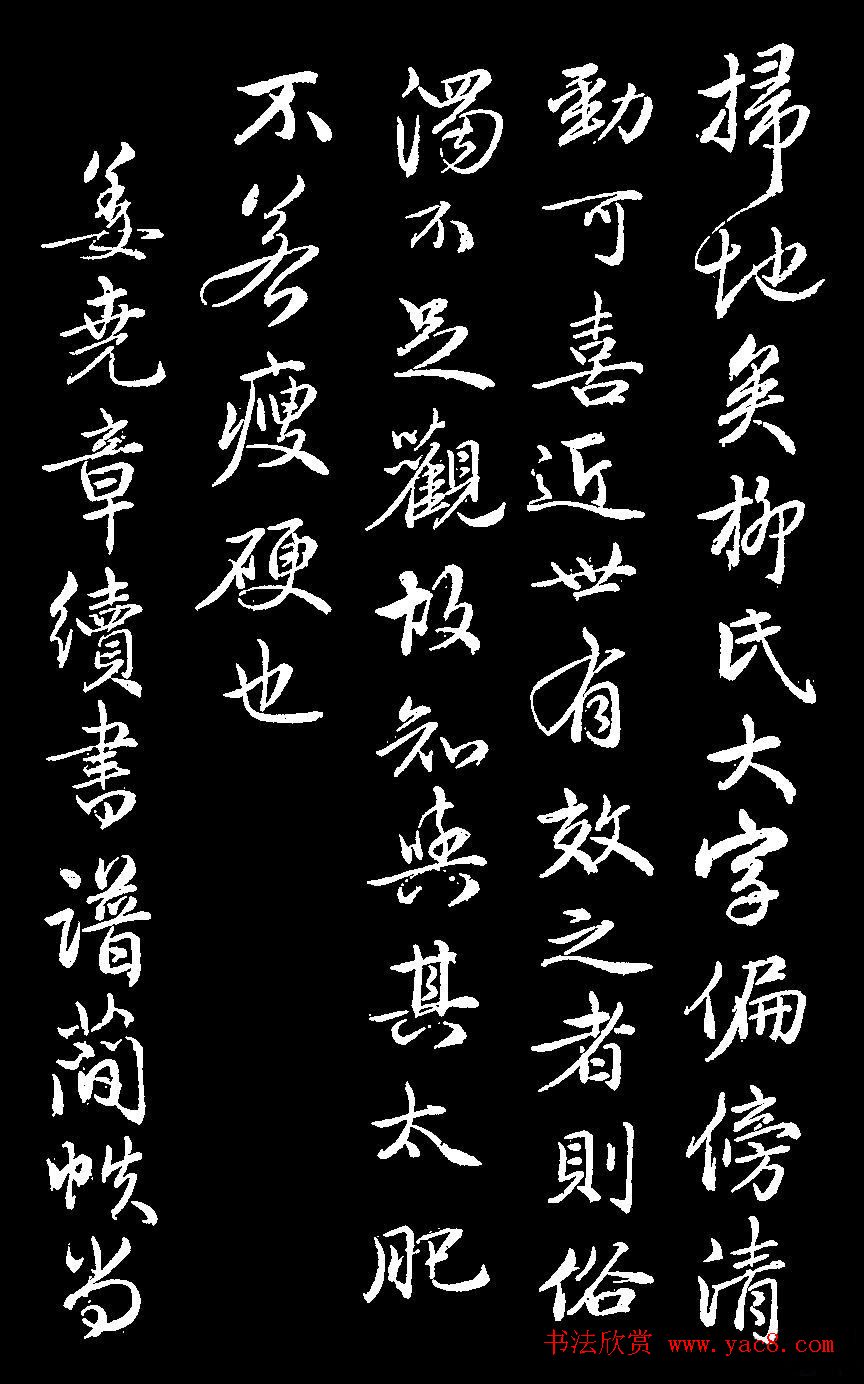 掃地矣柳氏大字偏傍清
勁可喜近世有效之者則俗
濁不足觀故知與其太肥
不若瘦硬也
姜堯章續書譜蕑帙當
书法欣赏 www.yac8.com